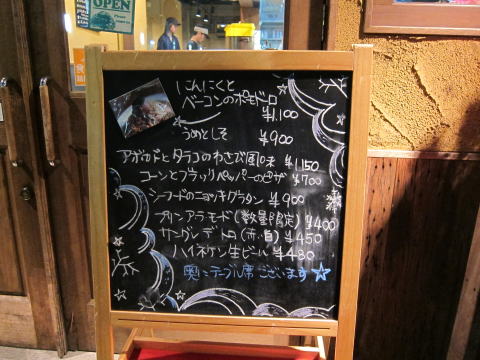 OPEN
にんにくと
ベーコンのポモドーロ
¥1,100
うめとしそ ¥900
アボカドとタラコのわさび風味 ¥1,150
コーンとブラックペッパーのピザ ¥700
シーフードのニョッキグラタン ¥900
プリンアラモード(数量限定) ¥400
サングレデトロ(赤・白) ¥450
ハイネケン生ビール ¥480
奥にテーブル席ございます